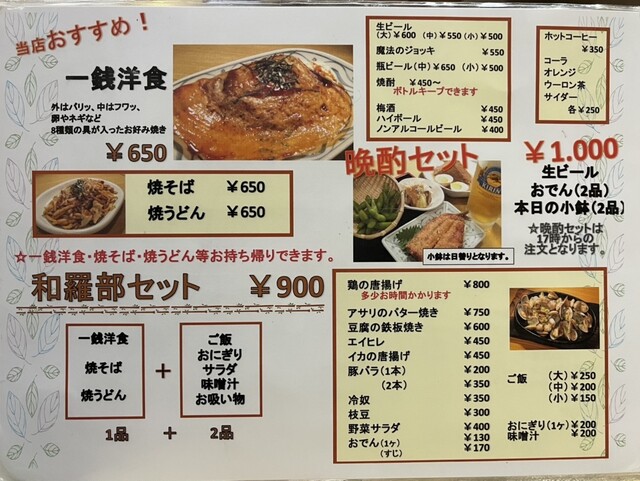 当店おすすめ！
一銭洋食
外はパリッ、中はフワッ、
卵やネギなど
8種類の具が入ったお好み焼き
￥650
焼そば ￥650
焼うどん ￥650
☆一銭洋食・焼そば・焼うどん等お持ち帰りできます。
和羅部セット ￥900
一銭洋食
焼そば
焼うどん
+
ご飯
おにぎり
サラダ
味噌汁
お吸い物
1品 + 2品
生ビール
(大)￥600 (中)￥550 (小)￥500
魔法のジョッキ ￥550
瓶ビール(中)￥650 (小)￥500
焼酎 ￥450～
ボトルキープできます
梅酒 ￥450
ハイボール ￥450
ノンアルコールビール ￥400
ホットコーヒー
￥350
コーラ
オレンジ
ウーロン茶
サイダー
各￥250
晩酌セット ￥1.000
生ビール
おでん(2品)
本日の小鉢(2品)
☆晩酌セットは
17時からの
注文となります。
小鉢は日替りとなります。
鶏の唐揚げ ￥800
多少お時間かかります
アサリのバター焼き ￥750
豆腐の鉄板焼き ￥600
エイヒレ ￥450
イカの唐揚げ ￥450
豚バラ(1本) ￥200
(2本) ￥350
冷奴 ￥350
枝豆 ￥300
野菜サラダ ￥400
おでん(1ヶ) ￥130
(すじ) ￥170
ご飯 (大)￥250
(中)￥200
(小)￥150
おにぎり(1ヶ)￥200
味噌汁 ￥200